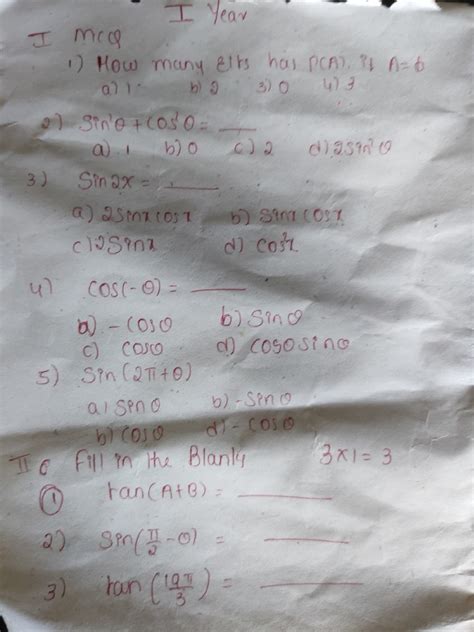 I Year
I MCQ
1) How many elts has P(A), if A=ϕ
a) 1 b) 2 3) 0 4) 3
2) Sin²θ + cos²θ = ___
a) 1 b) 0 c) 2 d) 2sin²θ
3) Sin2x = ___
a) 2sinx cosx b) Sinx cosx
c) 2Sinx d) cos²x
4) cos(-θ) = ___
a) -cosθ b) Sinθ
c) cosθ d) cosθ sinθ
5) Sin(2π+θ)
a) sinθ b) -Sinθ
b) cosθ d) -cosθ
II Fill in the Blanks 3x1=3
1 tan(A+B) = ___
2) Sin(π/2 -θ) = ___
3) tan(19π/3) = ___